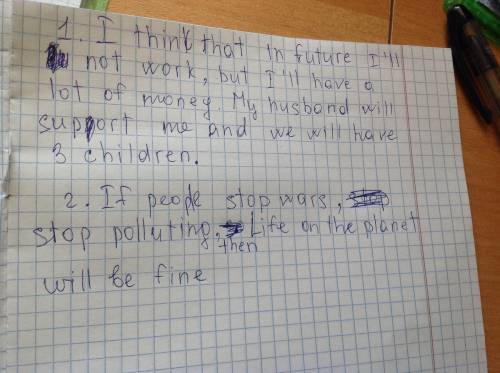 1. I think that in future I'll
not work, but I'll have a
lot of money. My husband will
support me and we will have
3 children.
2. If people stop wars,
stop polluting, then Life on the planet
will be fine